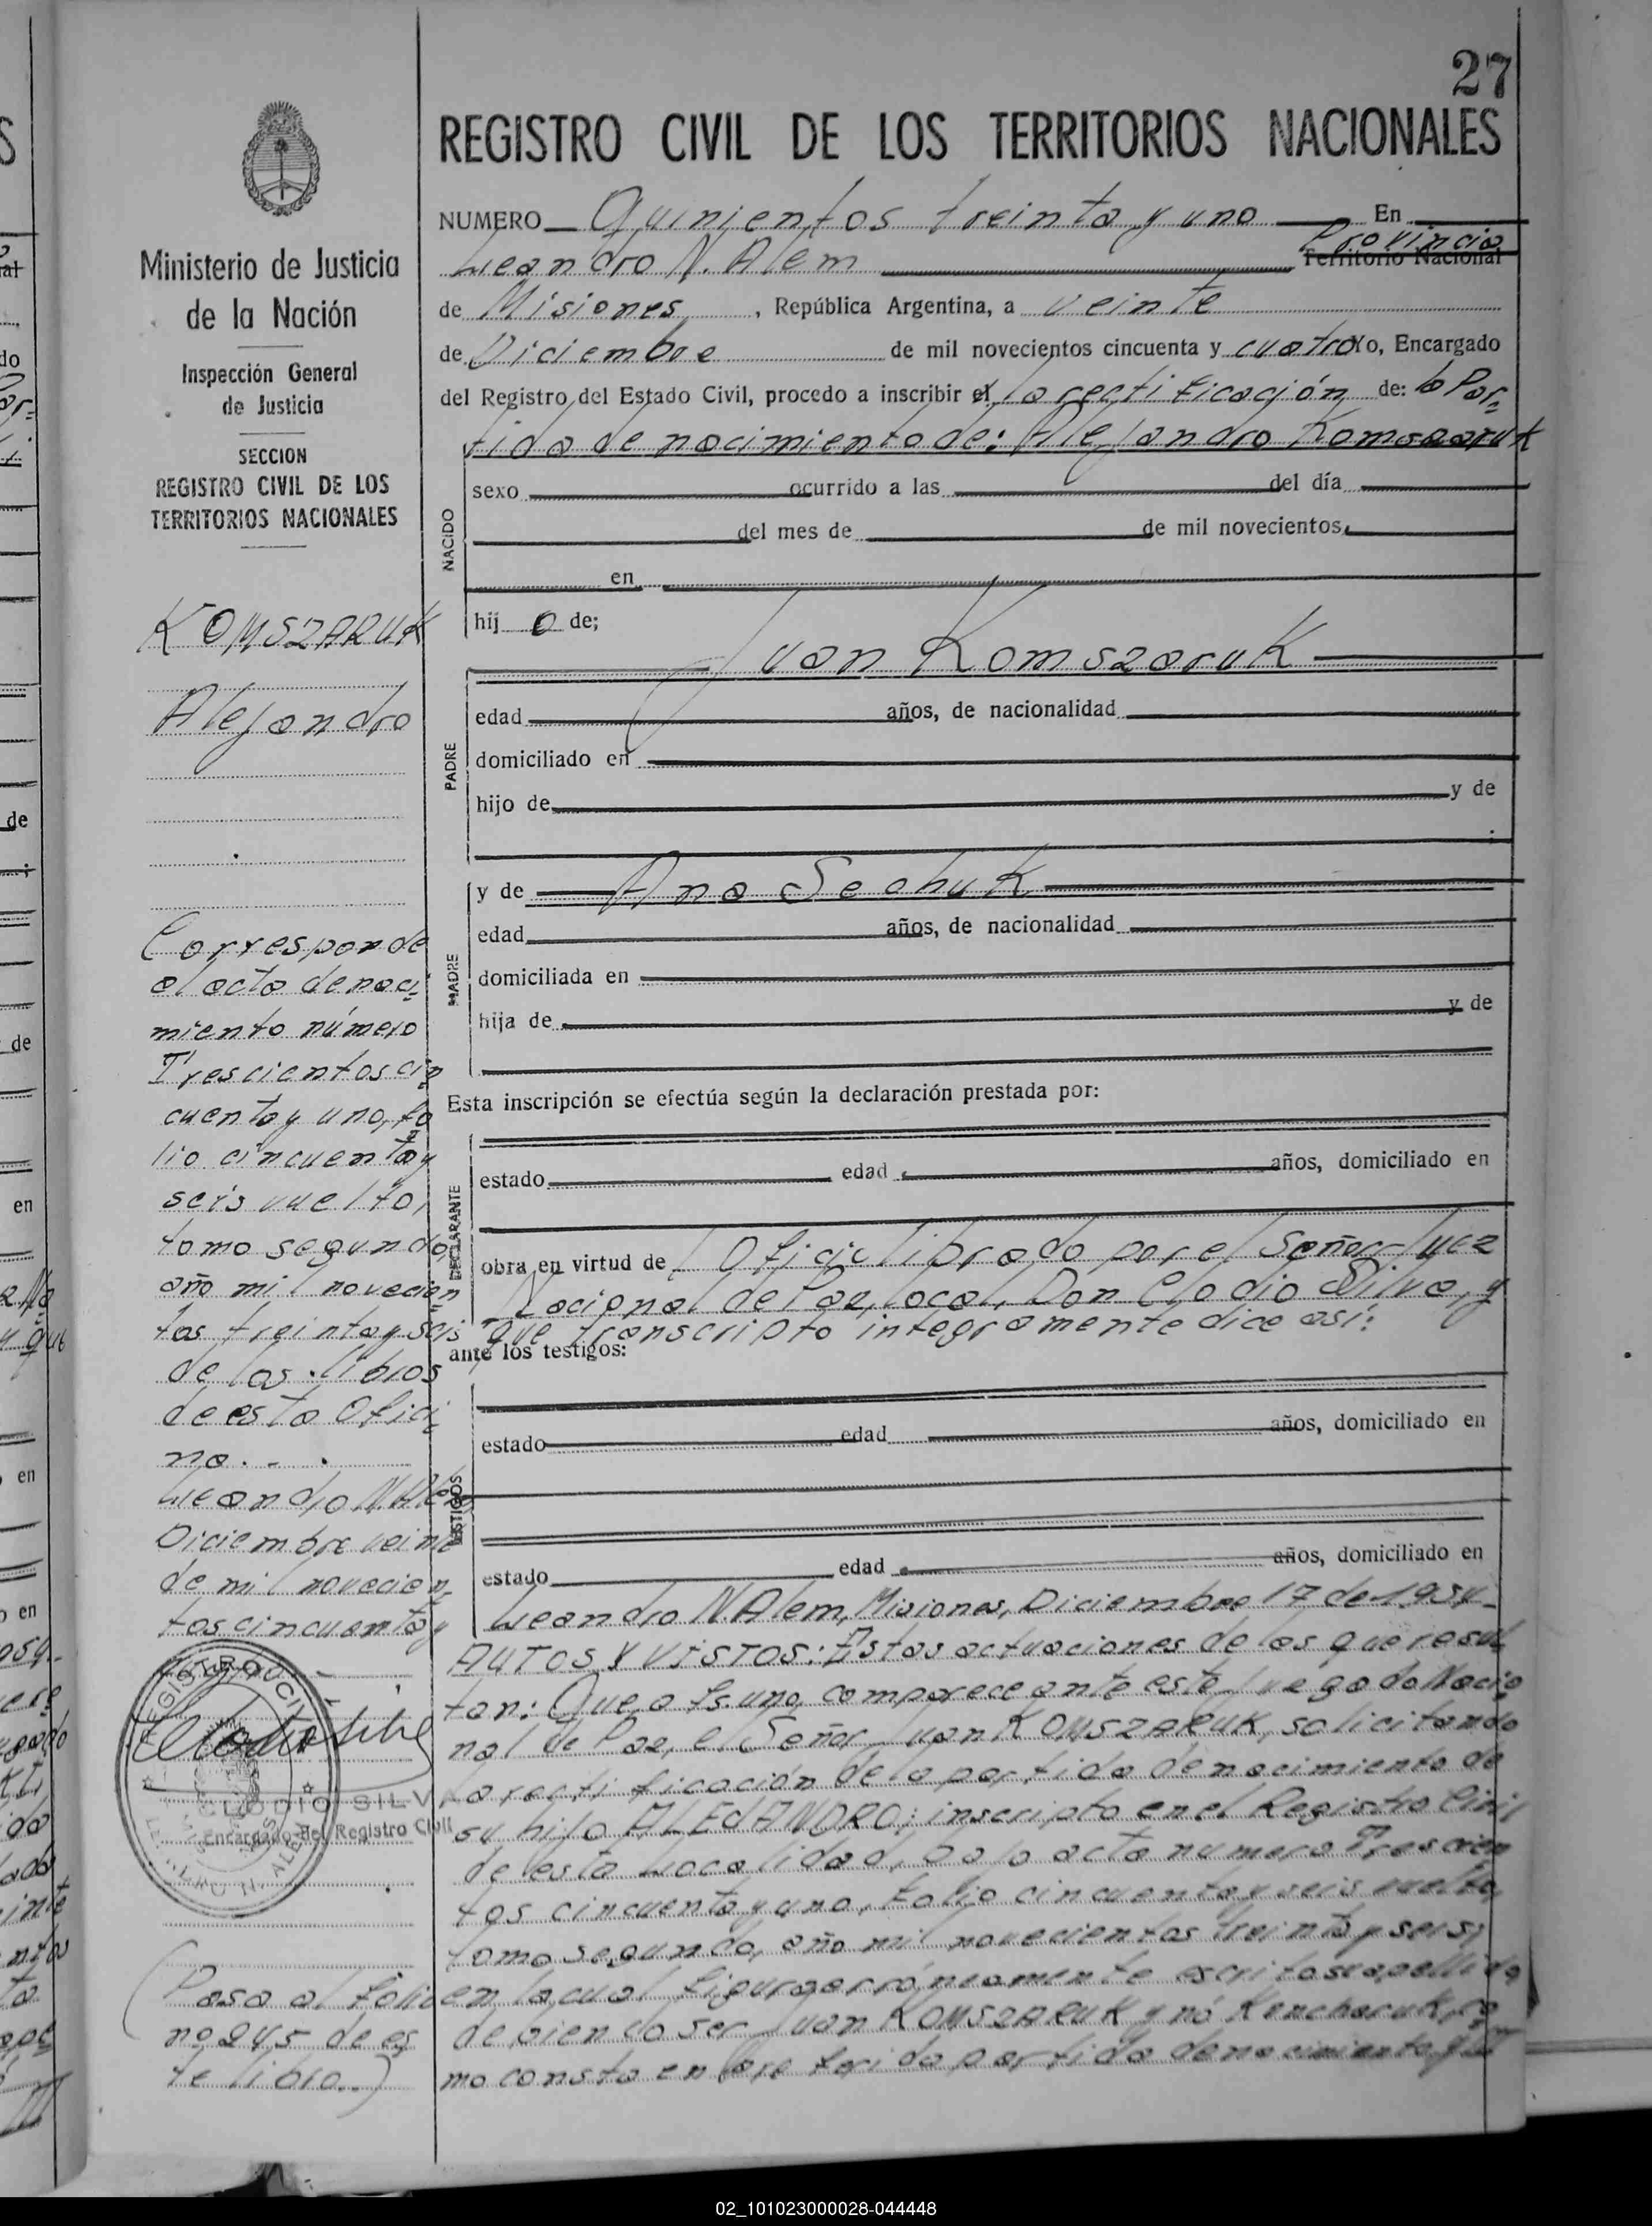 27
REGISTRO CIVIL DE LOS TERRITORIOS NACIONALES
Ministerio de Justicia
de la Nación
Inspección General
de Justicia
SECCION
REGISTRO CIVIL DE LOS
TERRITORIOS NACIONALES
KOMSZARUK
Alejandro
Corresponde
al acta de naci-
miento número
Trescientos cin
cuenta y uno, fo
lio cincuenta y
seis vuelto,
tomo segundo,
año mil novecien
tos treinta y seis
de los libros
de esta Ofici
na. - .
Leandro N. Alem
Diciembre veinte
de mil novecien-
tos cincuenta y
REGISTRO CIVIL
CLODIO SILVA
Encargado del Registro Civil
LEANDRO N. ALEM
(Pasa al folio
nº 245 de es
te libro.)
NUMERO Quinientos treinta y uno En
Leandro N. Alem Provincia Territorio Nacional
de Misiones, República Argentina, a veinte
de Diciembre de mil novecientos cincuenta y cuatro Yo, Encargado
del Registro del Estado Civil, procedo a inscribir el la rectificación de: la Par-
tida de nacimiento de: Alejandro Komszaruk
NACIDO
sexo ocurrido a las del día
del mes de de mil novecientos
en
hij o de;
Juan Komszaruk
PADRE
edad años, de nacionalidad
domiciliado en
hijo de y de
;
MADRE
y de Ana Sechuk
edad años, de nacionalidad
domiciliada en
hija de y de
Esta inscripción se efectúa según la declaración prestada por:
DECLARANTE
estado edad años, domiciliado en
obra en virtud de Oficio librado por el Señor Juez
Nacional de Paz, local, Don Clodio Silva, y
que transcripto integramente dice así:
ante los testigos:
TESTIGOS
estado edad años, domiciliado en
estado edad años, domiciliado en
Leandro N. Alem, Misiones, Diciembre 17 de 1954-
AUTOS Y VISTOS: Estas actuaciones de las que resul
tan: Que a fs. uno comparece ante este Juzgado Nacio
nal de Paz, el Señor Juan KOMSZARUK, solicitando
la rectificación de la partida de nacimiento de
su hijo ALEJANDRO; inscripto en el Registro Civil
de esta Localidad, bajo acta numero Trescien
tos cincuenta y uno, folio cincuenta y seis vuelto,
tomo segundo, año mil novecientos treinta y seis;
en la cual figura erróneamente escrito su apellido
debiendo ser Juan KOMSZARUK y nó Kencharuk, co
mo consta en la referida partida de nacimiento
02_101023000028-044448